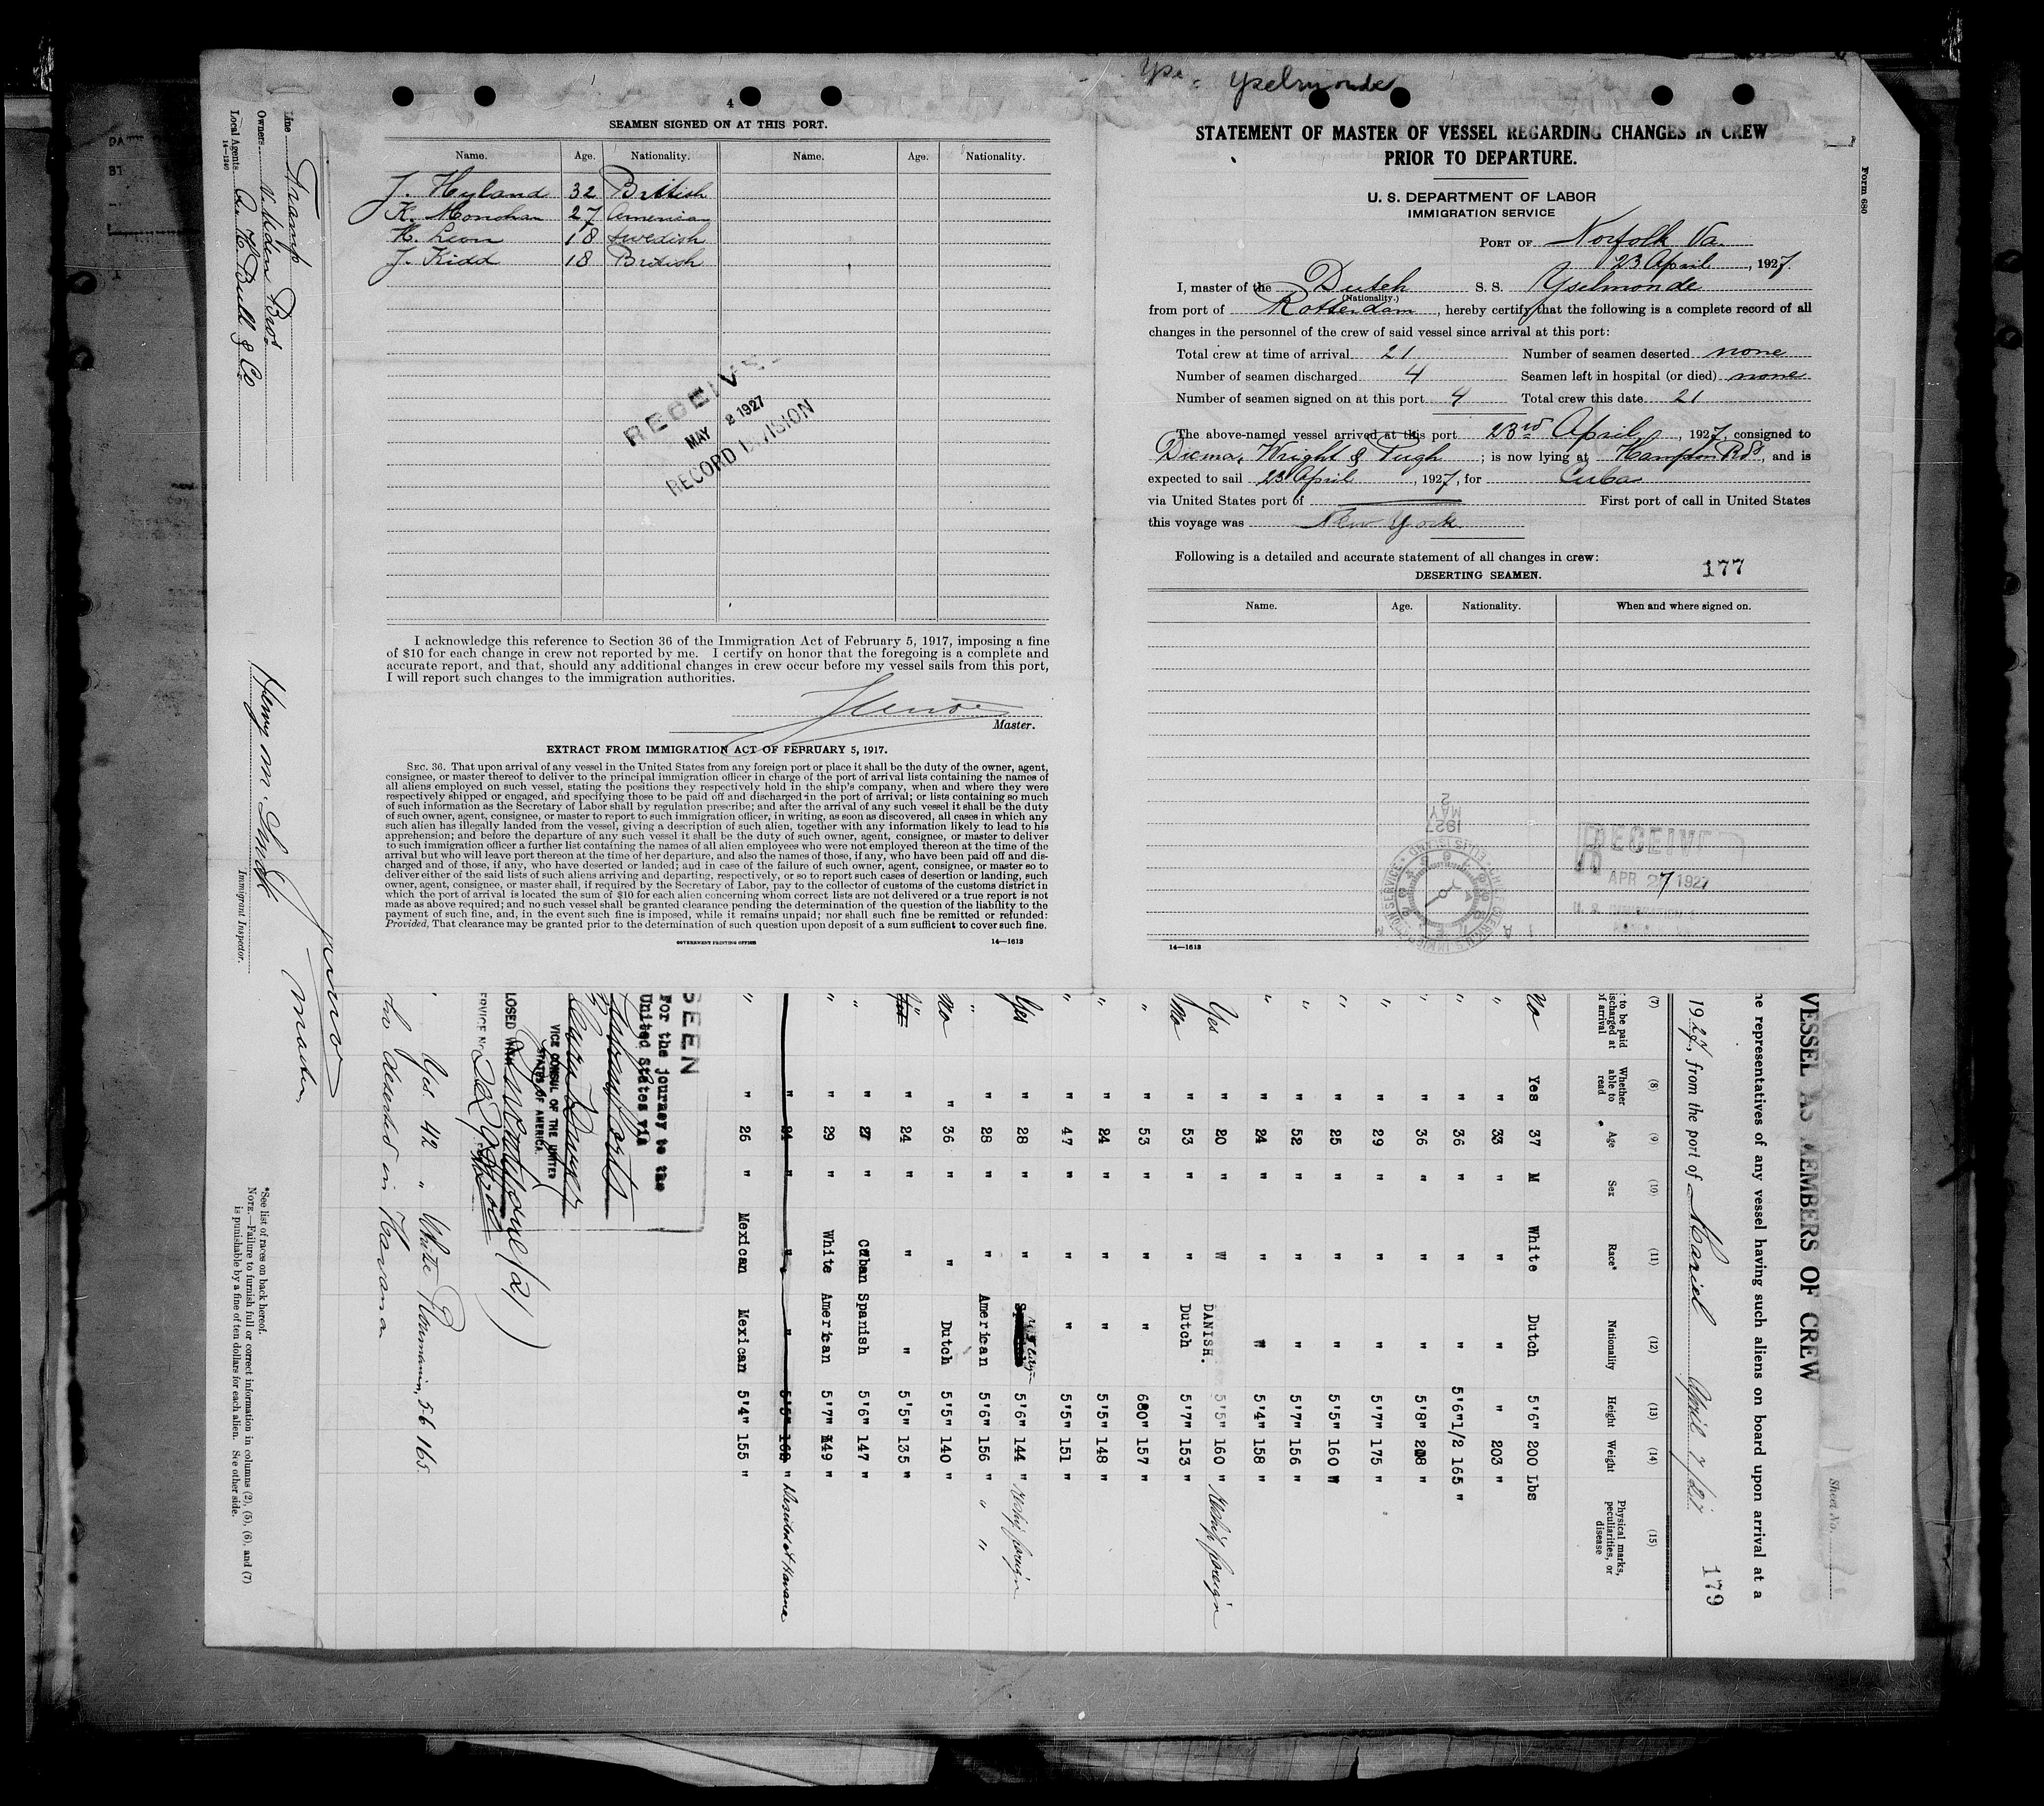 Yselmonde
4
SEAMEN SIGNED ON AT THIS PORT.
Name. Age. Nationality. Name. Age. Nationality.
J. Hyland 32 British
K. Monohan 27 American
K. Leon 18 Swedish
J. Kidd 18 British
RECEIVE
MAY 2 1927
RECORD DIVISION
I acknowledge this reference to Section 36 of the Immigration Act of February 5, 1917, imposing a fine
of $10 for each change in crew not reported by me. I certify on honor that the foregoing is a complete and
accurate report, and that, should any additional changes in crew occur before my vessel sails from this port,
I will report such changes to the immigration authorities.
Master.
EXTRACT FROM IMMIGRATION ACT OF FEBRUARY 5, 1917.
SEC. 36. That upon arrival of any vessel in the United States from any foreign port or place it shall be the duty of the owner, agent,
consignee, or master thereof to deliver to the principal immigration officer in charge of the port of arrival lists containing the names of
all aliens employed on such vessel, stating the positions they respectively hold in the ship's company, when and where they were
respectively shipped or engaged, and specifying those to be paid off and discharged in the port of arrival; or lists containing so much
of such information as the Secretary of Labor shall by regulation prescribe; and after the arrival of any such vessel it shall be the duty
of such owner, agent, consignee, or master to report to such immigration officer, in writing, as soon as discovered, all cases in which any
such alien has illegally landed from the vessel, giving a description of such alien, together with any information likely to lead to his
apprehension; and before the departure of any such vessel it shall be the duty of such owner, agent, consignee, or master to deliver
to such immigration officer a further list containing the names of all alien employees who were not employed thereon at the time of the
arrival but who will leave port thereon at the time of her departure, and also the names of those, if any, who have been paid off and dis-
charged and of those, if any, who have deserted or landed; and in case of the failure of such owner, agent, consignee, or master so to
deliver either of the said lists of such aliens arriving and departing, respectively, or so to report such cases of desertion or landing, such
owner, agent, consignee, or master, shall, if required by the Secretary of Labor, pay to the collector of customs of the customs district in
which the port of arrival is located the sum of $10 for each alien concerning whom correct lists are not delivered or a true report is not
made as above required; and no such vessel shall be granted clearance pending the determination of the question of the liability to the
payment of such fine, and, in the event such fine is imposed, while it remains unpaid; nor shall such fine be remitted or refunded:
Provided, That clearance may be granted prior to the determination of such question upon deposit of a sum sufficient to cover such fine.
GOVERNMENT PRINTING OFFICE 14—1613
Form 680
STATEMENT OF MASTER OF VESSEL REGARDING CHANGES IN CREW
PRIOR TO DEPARTURE.
U. S. DEPARTMENT OF LABOR
IMMIGRATION SERVICE
PORT OF Norfolk Va.
23 April, 1927.
I, master of the Dutch S. S. Yselmonde
(Nationality.)
from port of Rotterdam, hereby certify that the following is a complete record of all
changes in the personnel of the crew of said vessel since arrival at this port:
Total crew at time of arrival 21 Number of seamen deserted none
Number of seamen discharged 4 Seamen left in hospital (or died) none
Number of seamen signed on at this port 4 Total crew this date 21
The above-named vessel arrived at this port 23rd April, 1927, consigned to
Wright & Pugh; is now lying at Hampton Rds, and is
expected to sail 23 April, 1927, for Cuba
via United States port of First port of call in United States
this voyage was New York
Following is a detailed and accurate statement of all changes in crew:
177
DESERTING SEAMEN.
Name. Age. Nationality. When and where signed on.
1927
MAY
2
RECEIVE
APR 27 1927
14—1613
VESSEL AS MEMBERS OF CREW
Sheet No.
he representatives of any vessel having such aliens on board upon arrival at a
1927, from the port of Mariel April 7/27 179
(7) (8) (9) (10) (11) (12) (13) (14) (15)
to be paid discharged at of arrival Whether able to read Age Sex Race* Nationality Height Weight Physical marks, peculiarities, or disease
No Yes 37 M White Dutch 5'6" 200 Lbs
" " 33 " " " " 203 "
" " 36 " " " 5'6"1/2 165 "
" " 36 " " " 5'8" 208 "
" " 29 " " " 5'7" 175 "
" " 25 " " " 5'5" 160 "
" " 52 " " " 5'7" 156 "
" " 24 " " " 5'4" 158 "
Yes " 20 " " DANISH. 5'5" 160 " Reship foreign
No " 53 " " Dutch 5'7" 153 "
" " 53 " " " 157 "
" " 24 " " " 5'5" 148 "
" " 47 " " " 5'5" 151 "
Yes " 28 " " 5'6" 144 " Reship foreign
" " 28 " " American 5'6" 156 " " "
No " 36 " " Dutch 5'5" 140 "
" 24 " " " 5'5" 135 "
" " 27 " Cuban Spanish 5'6" 147 "
" " 29 " White American 5'7" 149 "
" 21 " " " 5'5" 162 " Deserted at Havana
" " 26 " Mexican Mexican 5'4" 155 "
SEEN
For the journey to the
United States via
VICE CONSUL OF THE UNITED
STATES OF AMERICA.
(21)
Yes. 42 " White 56 165.
deserted in Havana
master
Line Tramp
Owners
Local Agents A. H. Bull & Co
14—1240
Immigrant Inspector.
*See list of races on back hereof.
NOTE.—Failure to furnish full or correct information in columns (2), (5), (6), and (7)
is punishable by a fine of ten dollars for each alien. See other side.